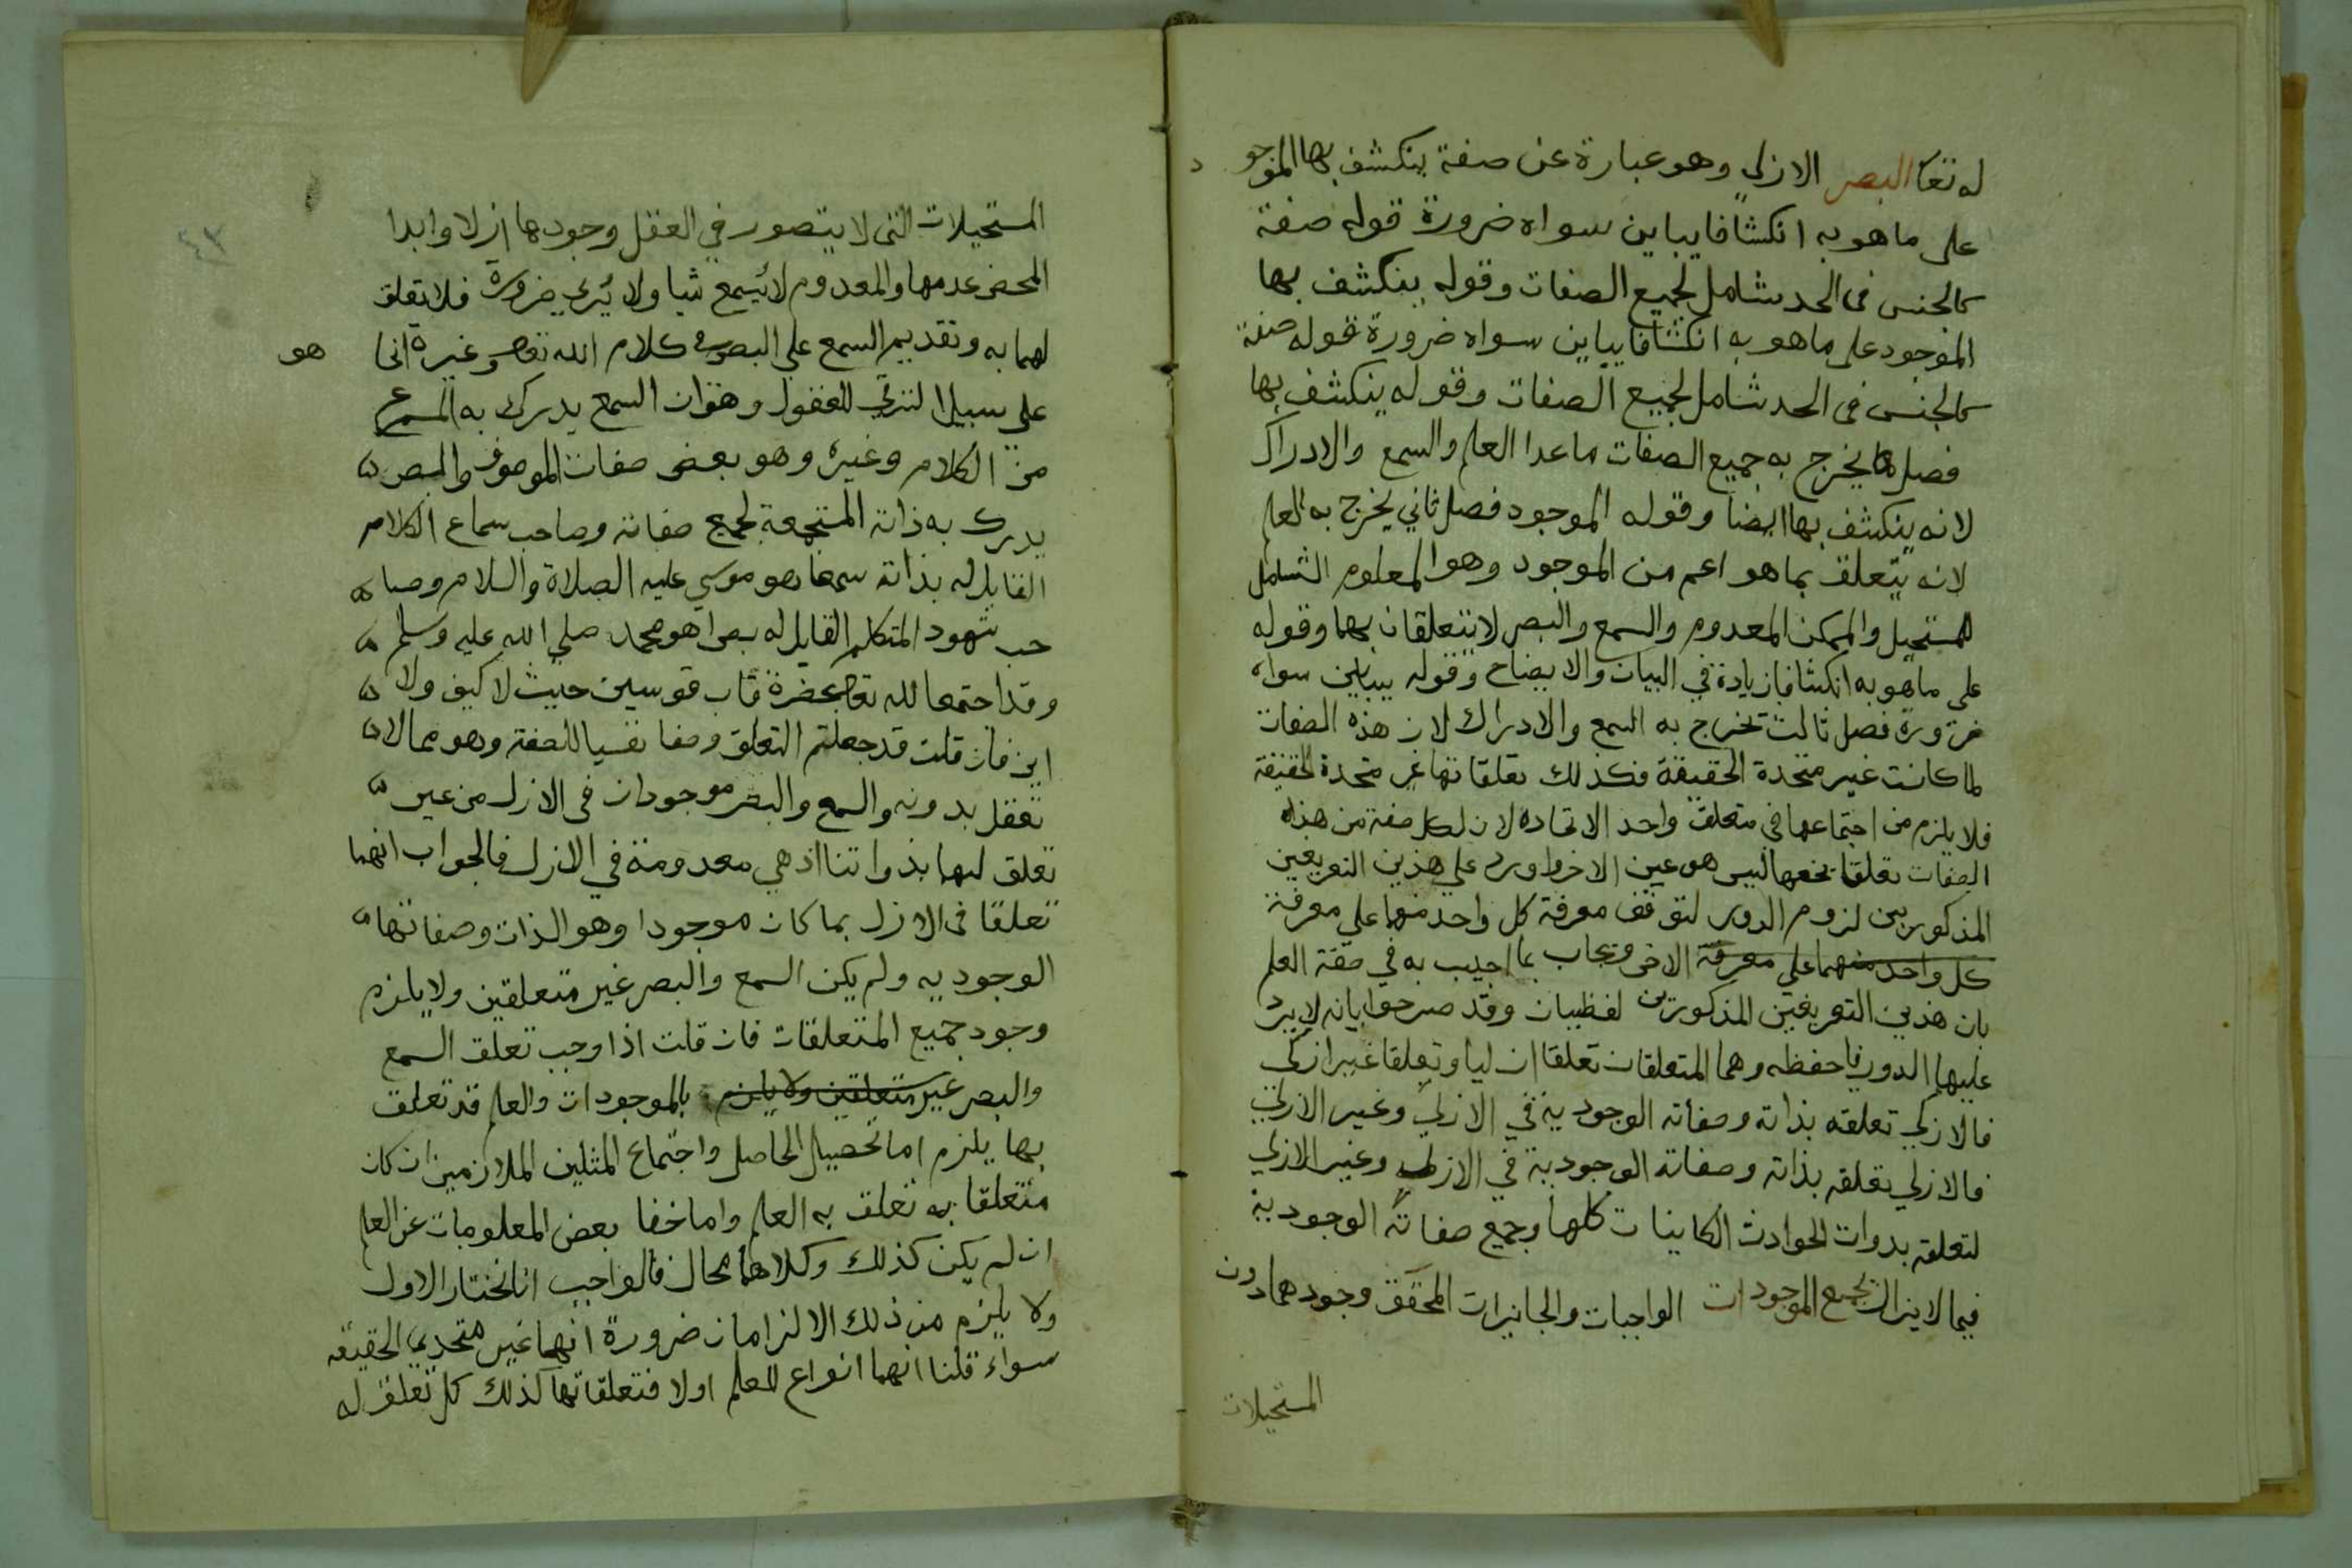 له تعا البصر الازلي وهو عبارة عن صفة ينكشف بها الموجود
على ما هو به انكشافا يباين سواه ضرورة قوله صفة
كالجنس فى الحد شامل لجميع الصفات وقوله ينكشف بها
الموجود على ما هو به انكشافا يباين سواه ضرورة قوله صفة
كالجنس فى الحد شامل لجميع الصفات وقوله ينكشف بها
فصل يخرج به جميع الصفات ما عدا العلم والسمع والادراك
لانه ينكشف بها ايضا وقوله الموجود فصل ثاني يخرج به العلم
لانه يتعلق بما هو اعم من الموجود وهو المعلوم الشامل
للمستحيل والممكن المعدوم والسمع والبصر لا يتعلقان بهما وقوله
على ما هو به انكشافا زيادة في البيان والايضاح وقوله يباين سواه
ضرورة فصل ثالث تخرج به السمع والادراك لان هذه الصفات
لما كانت غير متحدة الحقيقة فكذلك تعلقاتها غير متحدة الحقيقة
فلا يلزم من اجتماعها في متعلق واحد الاتحاده لان لكل صفة من هذه
الصفات تعلقا يخصها ليس هو عين الاخر واورد علي هذين التعريفين
المذكورين لزوم الدور لتوقف معرفة كل واحد منهما علي معرفة
كل واحد منهما علي معرفة الاخر ويجاب بما اجيب به في صفة العلم
بان هذين التعريفين المذكورين لفظيان وقد صرحوا بانه لا يرد
عليهما الدور فاحفظه وهما المتعلقان تعلقا ازليا وتعلقا غير ازلي
فالازلي تعلقه بذاته وصفاته الوجودية في الازلي وغير الازلي
فالازلي تعلقه بذاته وصفاته الوجودية في الازلي وغير الازلي
لتعلقه بدوات الحوادث الكاينات كلها وجميع صفاته الوجودية
فيما لا يزال بجميع الموجودات الواجبات والجايزات المحقق وجودهما دون
المستحيلات
٤٣
المستحيلات التى لا يتصور في العقل وجودها ازلا وابدا
المحض عدمها والمعدوم لا يُسمع شيا ولا يُرى ضرورة فلا تعلق
لهما به وتقديم السمع علي البصر في كلام الله تعا وغيره انما هو
على سبيل الترقي للعقول وهو ان السمع يدرك به المسموع
من الكلام وغيره وهو بعض صفات الموصوف والبصر
يدرك به ذاته المستجمعة لجميع صفاته وصاحب سماع الكلام
القابل له بذاته سمعا هو موسي عليه الصلاة والسلام وصا
حب شهود المتكلم القابل له بصرا هو محمد صلي الله عليه وسلم
وقد اجتمعا لله تعا بحضرة قاب قوسين حيث لا كيف ولا
اين فان قلت قد جعلتم التعلق وصفا نفسيا للصفة وهو مما لا
تعقل بدونه والسمع والبصر موجودان فى الازل من غير
تعلق لهما بذواتنا اذ هي معدومة في الازل فالجواب انهما
تعلقا فى الازل بما كان موجودا وهو الذات وصفاتها
الوجوديه ولم يكن السمع والبصر غير متعلقين ولا يلزم
وجود جميع المتعلقات فان قلت اذا وجب تعلق السمع
والبصر غير متعلقين ولا يلزم بالموجودات والعلم قد تعلق
بها يلزم اما تحصيل الحاصل واجتماع المثلين الملازمين ان كان
متعلقا به تعلق به العلم واما خفا بعض المعلومات عن العلم
ان لم يكن كذلك وكلاهما محال فالواجب انا نختار الاول
ولا يلزم من ذلك الالزامان ضرورة انهما غير متحدي الحقيقه
سواء قلنا انهما انواع للعلم اولا فتعلقاتها كذلك كل تعلق له